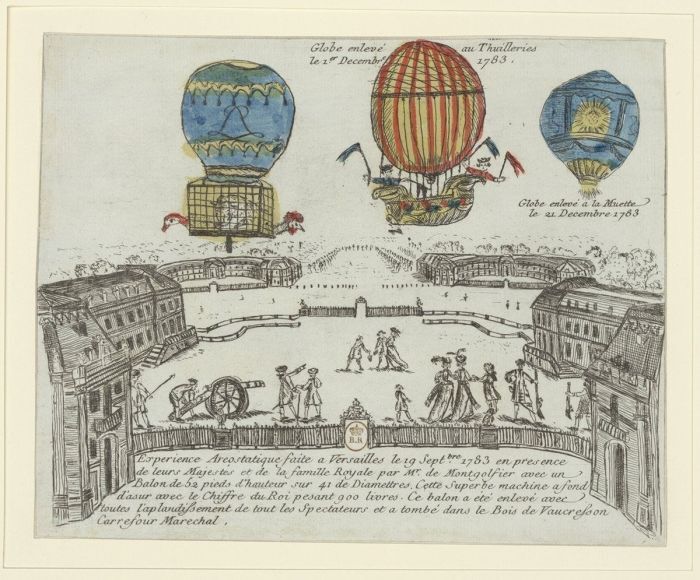 Globe enlevé au Thuilleries
le 1er Decembre 1783.
Globe enlevé a la Muette
le 21 Decembre 1783
B.R
Experience Areostatique faite a Versailles le 19 Septbre 1783 en presence
de leurs Majestes et de la famille Royale par Mr. de Montgolfier avec un
Balon de 52 pieds d'hauteur sur 41 de Diamettres. Cette Superbe machine a fond
d'asur avec le Chiffre du Roi pesant 900 livres. Ce balon a eté enlevé avec
toutes l'aplandissement de tout les Spectateurs et a tombé dans le Bois de Vaucresson
Carrefour Marechal.